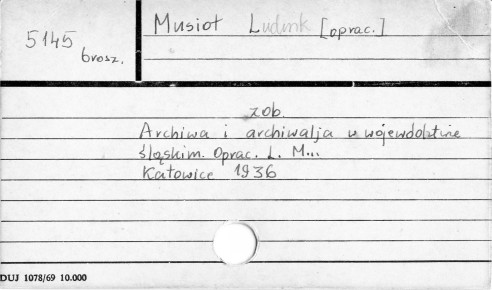 5145
brosz.
Musioł Ludwik [oprac.]
zob.
Archiwa i archiwalja w województwie
śląskim. Oprac. L. M...
Katowice 1936
DUJ 1078/69 10.000